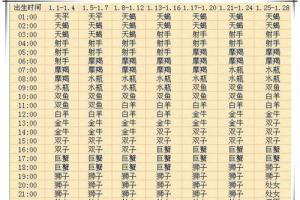 出生时间 1.1-1.4 1.5-1.7 1.8-1.12 1.13-1.16 1.17-1.20 1.21-1.24 1.25-1.28
01:00 天平 天平 天蝎 天蝎 天蝎 天蝎 天蝎
02:00 天蝎 天蝎 天蝎 天蝎 天蝎 天蝎 天蝎
03:00 天蝎 天蝎 天蝎 射手 射手 射手 射手
04:00 射手 射手 射手 射手 射手 射手 射手
05:00 射手 射手 射手 射手 射手 摩羯 摩羯
06:00 射手 射手 摩羯 摩羯 摩羯 摩羯 摩羯
07:00 摩羯 摩羯 摩羯 摩羯 摩羯 水瓶 水瓶
08:00 摩羯 水瓶 水瓶 水瓶 水瓶 水瓶
09:00 水瓶 水瓶 水瓶 双鱼 双鱼
10:00 双鱼 双鱼 双鱼 白羊 白羊
11:00 双鱼 双鱼 白羊 白羊 白羊 白羊
12:00 白羊 白羊 金牛 金牛 金牛
13:00 金牛 金牛 金牛 金牛 金牛 双子
14:00 金牛 金牛 金牛 双子 双子 双子 双子
15:00 双子 双子 双子 双子 双子 巨蟹
16:00 双子 双子 巨蟹 巨蟹 巨蟹 巨蟹
17:00 巨蟹 巨蟹 巨蟹 巨蟹 巨蟹 巨蟹
18:00 巨蟹 巨蟹 巨蟹 巨蟹 狮子 狮子
19:00 狮子 狮子 狮子 狮子 狮子 狮子
20:00 狮子 狮子 狮子 狮子 狮子 狮子 处女
21:00 狮子 狮子 狮子 处女